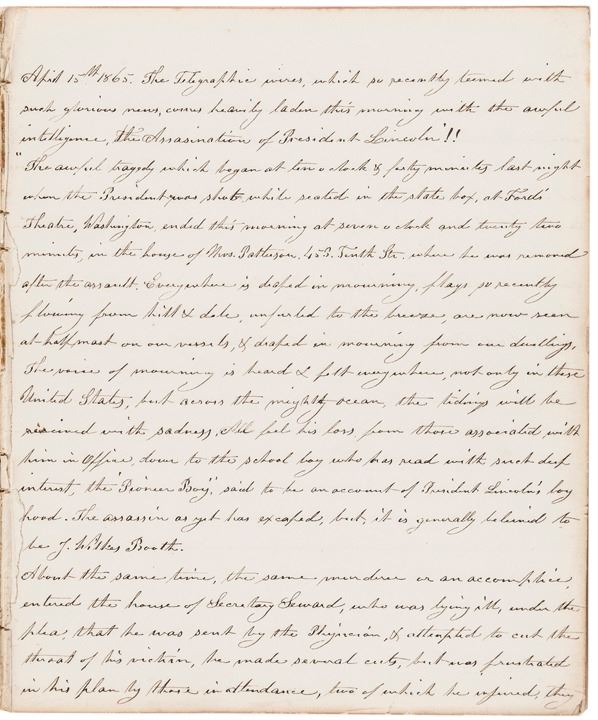 April 15th 1865. The Telegraphic wires, which so recently teemed with
such glorious news, comes heavily laden this morning with the awful
intelligence, the "Assasination of President Lincoln"!!
"The awful tragedy which began at ten o clock & forty minutes last night
when the President was shot, while seated in the state box, at Ford's
Theatre, Washington, ended this morning at seven o clock and twenty two
minutes, in the house of Mrs. Patterson, 453. Tenth St., where he was removed
after the assault. Everywhere is draped in mourning, flags so recently
flowing from hill & dale, unfurled to the breeze, are now seen
at half mast on our vessels, & draped in mourning from our dwellings.
The voice of mourning is heard & felt everywhere, not only in these
United States, but across the mighty ocean, the tidings will be
received with sadness, All feel his loss, from those associated with
him in Office, down to the school boy who has read with such deep
interest, the 'Pioneer Boy', said to be an account of President Lincoln's boy
hood. The assassin as yet has excaped, but, it is generally beleived to
be J. Wilkes Booth.
About the same time, the same murderer or an accomplice,
entered the house of Secretary Seward, who was lying ill, under the
plea, that he was sent by the Physician, & attempted to cut the
throat of his victim, he made several cuts, but was frustrated
in his plan by those in attendance, two of which he injured, they